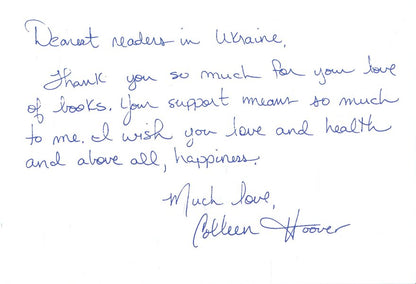 Dearest readers in Ukraine,
Thank you so much for your love
of books. Your support means so much
to me. I wish you love and health
and above all, happiness.
Much love,
Colleen Hoover